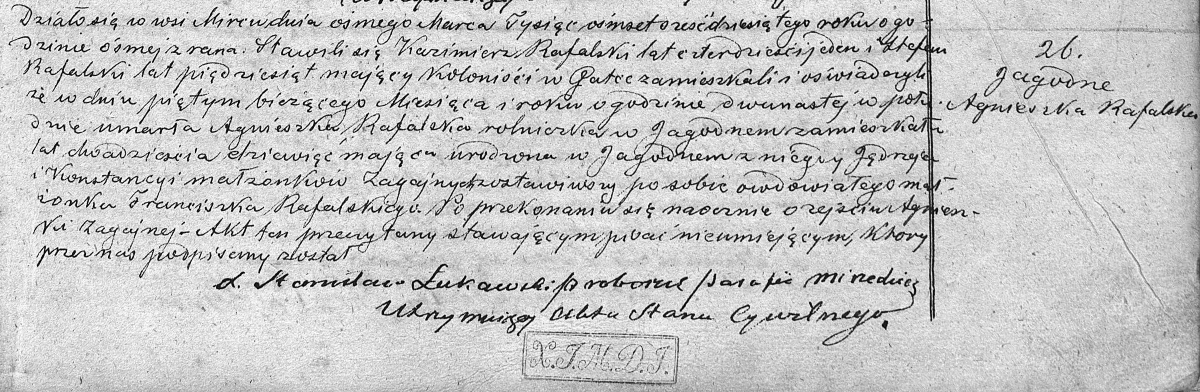 Działo się w wsi Mirew dnia ósmego Marca Tysiąc ośmset sześćdziesiątego roku o go-
dzinie ósmej z rana. Stawili się Kazimierz Rafalski lat czterdzieści jeden i Stefan
Rafalski lat piędziesiąt mający Koloniści w Gatce zamieszkali i oświadczyli
że w dniu piętym bieżącego Miesiąca i roku o godzinie dwunastej w połu-
dnie umarła Agnieszka Rafalska rolniczka w Jagodnem zamieszkała
lat dwadzieścia dziewięć mająca urodzona w Jagodnem z niegdy Jędrzeja
i Konstancyi małżonków Zagajnych zostawiwszy po sobie owdowiałego mał-
żonka Franciszka Rafalskiego. Po przekonaniu się naocznie o zejściu Agniesz-
ki Zagajnej – Akt ten przeczytany stawającym, pisać nieumiejącym, Który
przez nas podpisany został
Stanisław Łukawski proboszcz parafii
Utrzymujący Akta Stanu Cywilnego.
26.
Jagodne
Agnieszka Rafalska
X.J.M.D.J.